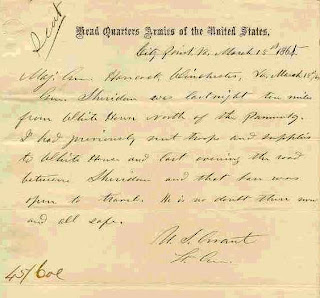 Sent
Head Quarters Armies of the United States.
City Point Va. March 15th 1865
Maj. Gen. Hancock, Winchester, Va. March 15/65
Gen. Sheridan was last night ten miles
from White House north of the Pamunky.
I had previously sent troops and supplies
to White House and last evening the road
between Sheridan and that place was
open to travel. He is no doubt there now
and all safe.
U. S. Grant
Lt. Gen.